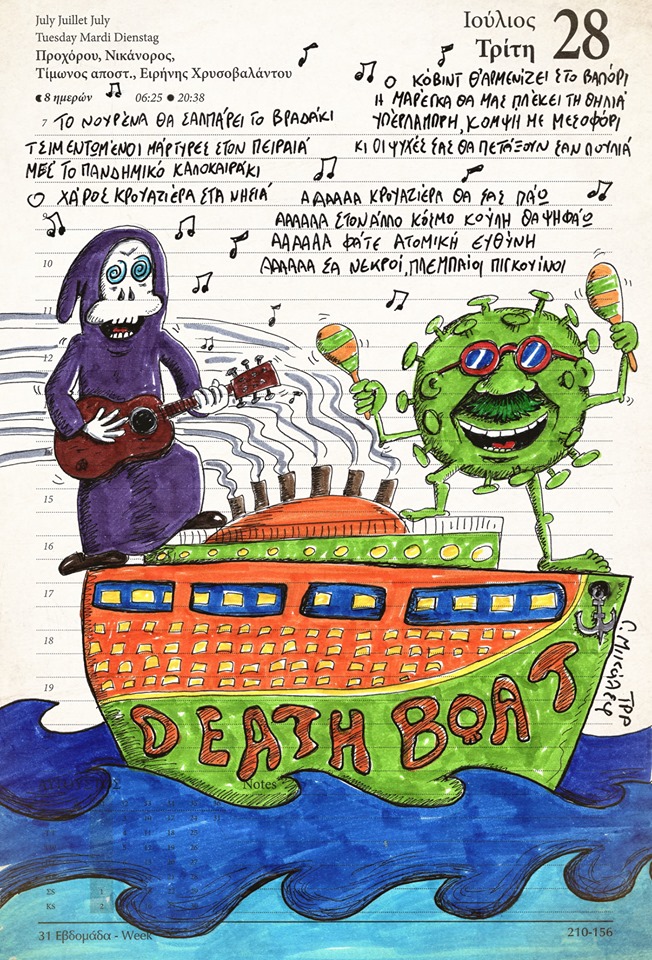 July Juillet July
Tuesday Mardi Dienstag
Προχόρου, Νικάνορος,
Τίμωνος αποστ., Ειρήνης Χρυσοβαλάντου
8 ημερών 06:25 ● 20:38
Ιούλιος
Τρίτη
28
7 ΤΟ ΝΟΥΡΕΝΑ ΘΑ ΣΑΛΠΑΡΕΙ ΤΟ ΒΡΑΔΑΚΙ
ΤΣΙΜΕΝΤΩΜΕΝΟΙ ΜΑΡΤΥΡΕΣ ΣΤΟΝ ΠΕΙΡΑΙΑ
ΜΕΣ ΤΟ ΠΑΝΔΗΜΙΚΟ ΚΑΛΟΚΑΙΡΑΚΙ
Ο ΧΑΡΟΣ ΚΡΟΥΑΖΙΕΡΑ ΣΤΑ ΝΗΣΙΑ
Ο ΚΟΒΙΝΤ Θ'ΑΡΜΕΝΙΖΕΙ ΣΤΟ ΒΑΠΟΡΙ
Η ΜΑΡΕΓΚΑ ΘΑ ΜΑΣ ΠΛΕΚΕΙ ΤΗ ΘΗΛΙΑ
ΥΠΕΡΛΑΜΠΡΗ, ΚΟΜΨΗ ΜΕ ΜΕΣΟΦΟΡΙ
ΚΙ ΟΙ ΨΥΧΕΣ ΣΑΣ ΘΑ ΠΕΤΑΞΟΥΝ ΣΑΝ ΠΟΥΛΙΑ
ΑΑΑΑΑΑ ΚΡΟΥΑΖΙΕΡΑ ΘΑ ΣΑΣ ΠΑΩ
ΑΑΑΑΑΑ ΣΤΟΝ ΑΛΛΟ ΚΟΣΜΟ ΚΟΥΛΗ ΘΑ ΨΗΦΑΩ
ΑΑΑΑΑΑ ΦΑΤΕ ΑΤΟΜΙΚΗ ΕΥΘΥΝΗ
ΑΑΑΑΑΑ ΣΑ ΝΕΚΡΟΙ, ΠΛΕΜΠΑΙΟΙ ΠΙΓΚΟΥΙΝΟΙ
9
10
11
12
15
16
17
18
19
DEATH BOAT
Notes
ΣS 1
ΚS 2
31 Εβδομάδα - Week
210-156